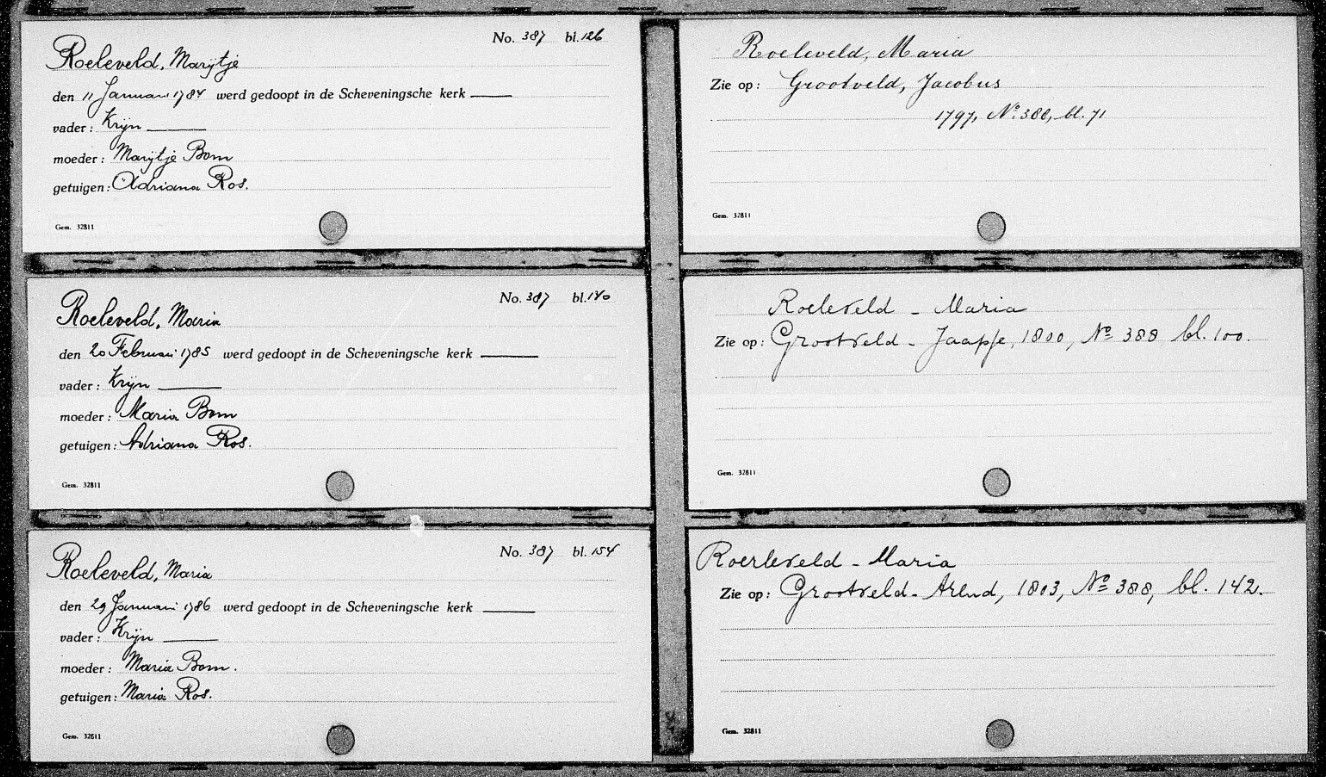 No. 387 bl. 126
Roeleveld, Marijtje
den 11 Januari 1784 werd gedoopt in de Scheveningsche kerk
vader: Krijn
moeder: Marijtje Bom
getuigen: Adriana Ros.
Gem. 32811
No. 387 bl. 140
Roeleveld, Maria
den 20 Februari 1785 werd gedoopt in de Scheveningsche kerk
vader: Krijn
moeder: Maria Bom
getuigen: Adriana Ros.
Gem. 32811
No. 387 bl. 154
Roeleveld, Maria
den 29 Januari 1786 werd gedoopt in de Scheveningsche kerk
vader: Krijn
moeder: Maria Bom.
getuigen: Maria Ros.
Gem. 32811
Roeleveld, Maria
Zie op: Grootveld, Jacobus
1797, No. 388, bl. 71
Gem. 32811
Roeleveld - Maria
Zie op: Grootveld - Jaapje, 1800, No 388 bl. 100.
Gem. 32811
Roerleveld - Maria
Zie op: Grootveld - Arend, 1803, No 388, bl. 142.
Gem. 32811